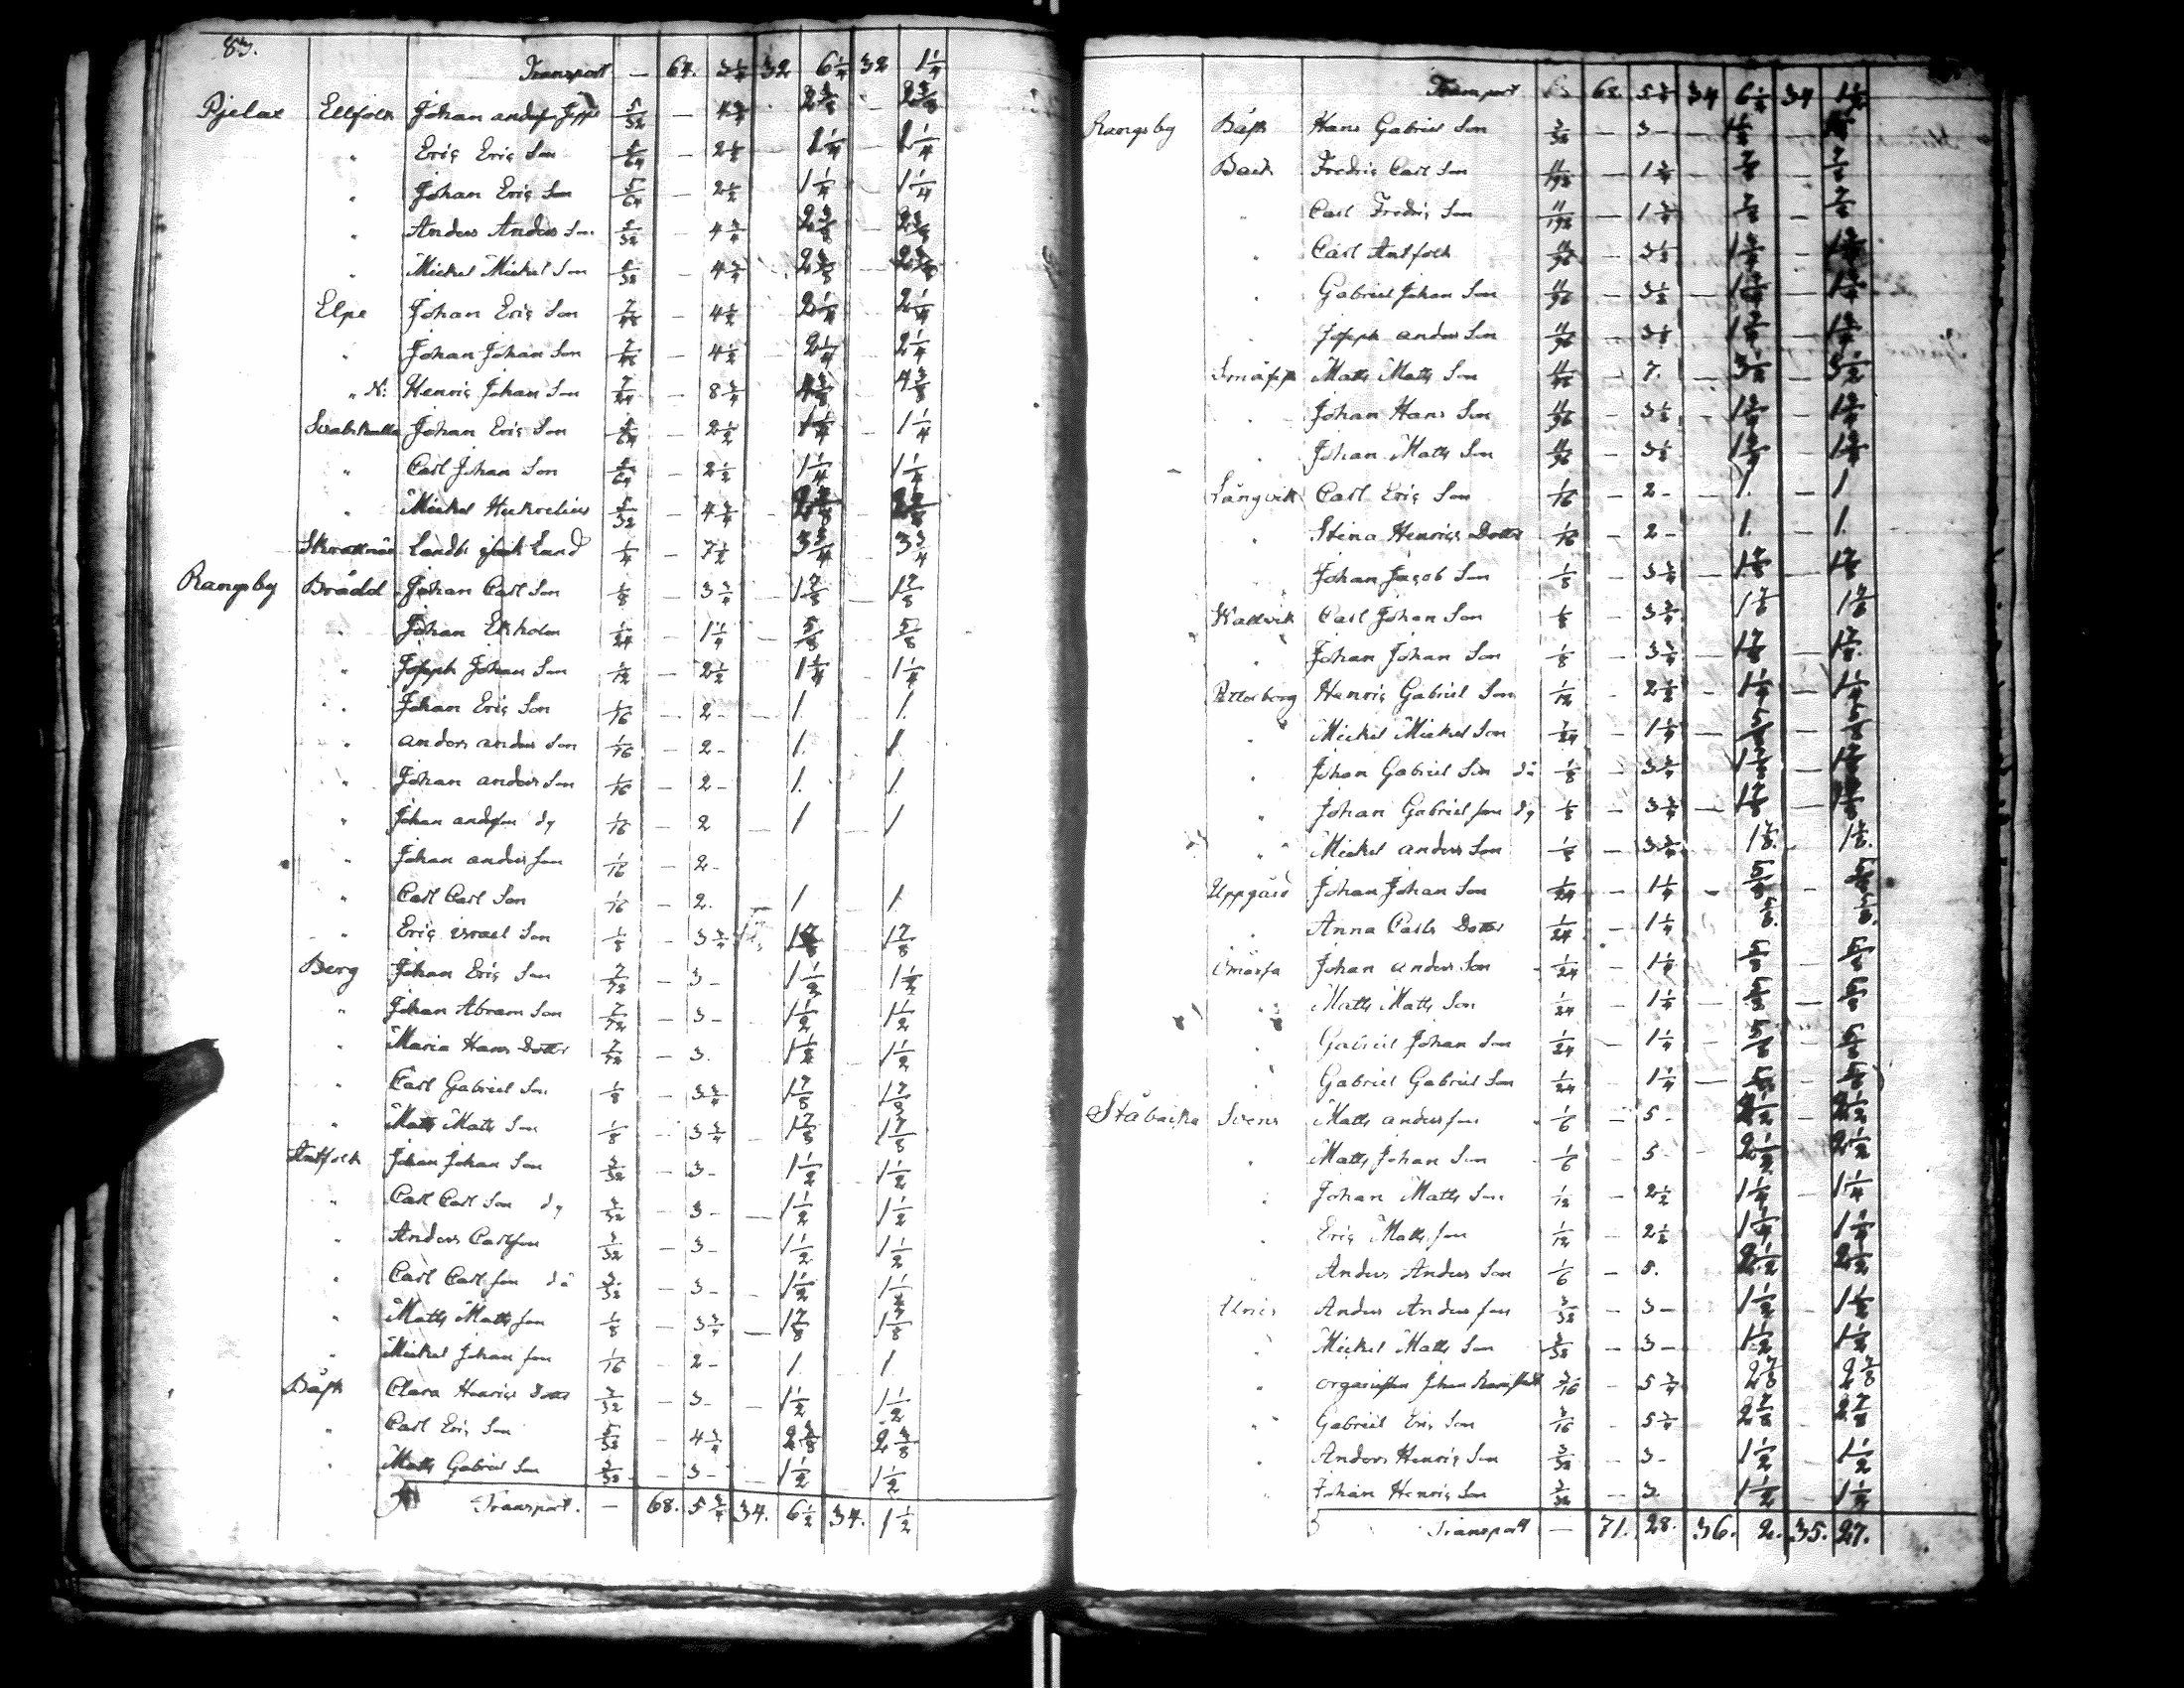 Transport — 64. 3 1/4 32 6 1/4 32 1 1/4
Pjelax Ellfolk Johan 5/32 — 4 3/4 2 3/8 — 2 3/8
" Eric Eric Son 5/64 — 2 1/2 — 1 1/4 — 1 1/4
" Johan Eric Son 5/64 — 2 1/2 1 1/4 1 1/4
" Anders Anders Son 5/32 — 4 3/4 2 3/8 — 2 3/8
" Mickel Mickel Son 5/32 — 4 3/4 2 3/8 — 2 3/8
Elpe Johan Eric Son 7/48 — 4 1/2 2 1/4 2 1/4
" Johan Johan Son 7/48 — 4 1/2 — 2 1/4 2 1/4
" N: Henric Johan Son 7/24 — 8 3/4 4 3/8 4 3/8
Johan Eric Son 5/64 — 2 1/2 1 1/4 — 1 1/4
" Carl Johan Son 5/64 — 2 1/2 1 1/4 1 1/4
" Mickel 5/32 — 4 3/4 — 2 3/8 2 3/8
1/4 — 7 1/2 3 3/4 3 3/4
Rangsby Brådd Johan Carl Son 1/8 — 3 3/4 — 1 7/8 — 1 7/8
" Johan Ekholm 1/24 — 1 1/4 — 5/8 5/8
" Joseph Johan Son 1/12 — 2 1/2 1 1/4 1 1/4
" Johan Eric Son 1/16 — 2 — — 1. 1.
" anders anders Son 1/16 — 2 — 1. 1
" Johan anders Son 1/16 — 2 — 1. 1.
" Johan anderson dy 1/16 — 2 — 1 — 1
" Johan anders son 1/16 — 2 —
" Carl Carl Son 1/16 — 2. — 1 1
" Eric Israel Son 1/8 — 3 3/4 1 7/8 1 7/8
Berg Johan Eric Son 7/72 — 3 — 1 1/2 1 1/2
" Johan Abram Son 7/72 — 3 — 1 1/2 1 1/2
" Maria Hans Dotter 7/72 — 3. 1 1/2 1 1/2
" Carl Gabriel Son 1/8 — 3 3/4 1 7/8 1 7/8
" Matts Matts Son 1/8 — 3 3/4 — 1 7/8 1 7/8
Antfolk Johan Johan Son 3/32 — 3 — 1 1/2 1 1/2
" Carl Carl Son dy 3/32 — 3 — — 1 1/2 1 1/2
" Anders Carlson 3/32 — 3 — 1 1/2 1 1/2
" Carl Carl son dä 3/32 — 3 — 1 1/2 1 1/2
" Matts Matts son 1/8 — 3 3/4 — 1 7/8 1 7/8
" Mickel Johan son 1/16 — 2 — 1. 1
Båsk Clara Henrics Dotter 3/32 — 3 — 1 1/2 1 1/2
" Carl Eric Son 5/32 — 4 3/4 2 3/8 2 3/8
" Matts Gabriel Son 3/32 — 3 — — 1 1/2 1 1/2
Transport. — 68. 5 3/4 34. 6 1/2 34. 1 1/2
Transport 68. 5 3/4 34 6 1/2 34 1 1/2
Rangsby Båsk Hans Gabriel Son 3/32 — 3 — — 1 1/2 1 1/2
Back Fredric Carl Son 11/192 — 1 3/4 — 7/8 — 7/8
" Carl Fredric Son 11/192 — 1 3/4 7/8 — 7/8
" Carl Antfolk 11/96 — 3 1/2 1 3/4 — 1 3/4
" Gabriel Johan Son 11/96 — 3 1/2 — 1 3/4 — 1 3/4
" Joseph anders Son 11/96 — 3 1/2 1 3/4 — 1 3/4
Matts Matts Son — 7. — 3 1/2 — 3 1/2
" Johan Hans Son 11/96 — 3 1/2 — 1 3/4 — 1 3/4
" Johan Matts Son 11/96 — 3 1/2 — 1 3/4 — 1 3/4
Långvik Carl Eric Son 1/16 — 2 — — 1. — 1
" Stina Henrics Dotter 1/16 — 2 — 1. — 1.
" Johan Jacob Son 1/8 — 3 3/4 — 1 7/8 — 1 7/8
Carl Johan Son 1/8 — 3 3/4 1 7/8 1 7/8
" Johan Johan Son 1/8 — 3 3/4 — 1 7/8 — 1 7/8
Henric Gabriel Son 1/12 — 2 1/2 — 1 1/4 — 1 1/4
" Mickel Mickel Son 1/24 — 1 1/4 — 5/8 — 5/8
" Johan Gabriel Son dä 1/8 — 3 3/4 — 1 7/8 — 1 7/8
" Johan Gabriel son dy 1/8 — 3 3/4 — 1 7/8 — 1 7/8
" Mickel anders Son 1/8 — 3 3/4 1 7/8 1 7/8
Uppgård Johan Johan Son 1/24 — 1 1/4 — 5/8 — 5/8
" Anna Carls Dotter 1/24 — 1 1/4 5/8 5/8
Johan anders Son 1/24 — 1 1/4 5/8 — 5/8
" Matts Matts Son 1/24 — 1 1/4 — 5/8 — 5/8
" Gabriel Johan Son 1/24 — 1 1/4 — 5/8 — 5/8
" Gabriel Gabriel Son 1/24 — 1 1/4 — 5/8 — 5/8
Ståbacka Svens Matts anders son 1/6 — 5 — 2 1/2 — 2 1/2
" Matts Johan Son 1/6 — 5 — 2 1/2 2 1/2
" Johan Matts Son 1/12 — 2 1/2 1 1/4 — 1 1/4
" Eric Matts son 1/12 — 2 1/2 1 1/4 1 1/4
" Anders Anders Son 1/6 — 5. 2 1/2 2 1/2
Anders Anders son 3/32 — 3 — 1 1/2 — 1 1/2
" Mickel Matts Son 3/32 — 3 — 1 1/2 1 1/2
" organisten Johan 3/16 — 5 3/4 2 7/8 2 7/8
" Gabriel Eric Son 3/16 — 5 3/4 2 7/8 — 2 7/8
" Anders Henric Son 3/32 — 3 — 1 1/2 — 1 1/2
" Johan Henric Son 3/32 — 3. 1 1/2 — 1 1/2
Transport — 71. 28. 36. 2. 35. 27.